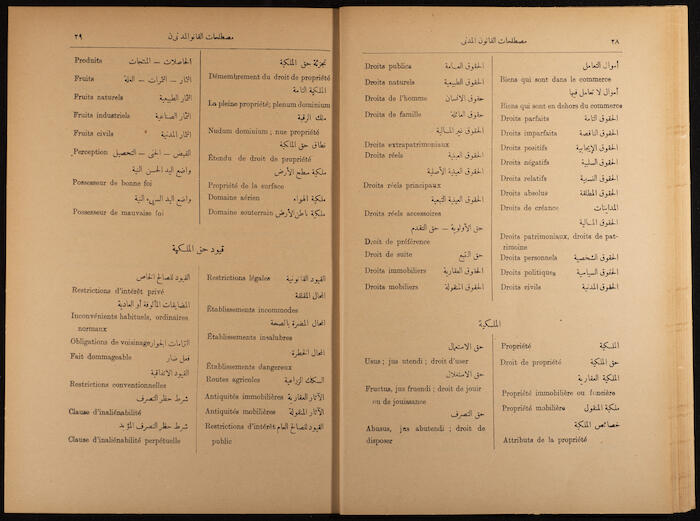 ٢٨
مصطلحات القانون المدنى
أموال التعامل
Biens qui sont dans le commerce
أموال لا تعامل فيها
Biens qui sont en dshors du commerce
الحقوق التامة Droits parfaits
الحقوق الناقصة Droits imparfaits
الحقوق الإيجابية Droits positifs
الحقوق السلبية Droits négatifs
الحقوق النسبية Droits relatifs
الحقوق المطلقة Droits absolus
المداينات Droits de créance
الحقوق المالية
Droits patrimoniaux, droits de pat-
rimoine
الحقوق الشخصية Droits personnels
الحقوق السياسية Droits politiques
الحقوق المدنية Droits civils
الحقوق العامة Droits publics
الحقوق الطبيعية Droits naturels
حقوق الانسان Droits de l'homme
حقوق العائلة Droits de famille
الحقوق غير المالية
Droits extrapatrimoniaux
الحقوق العينية Droits réels
الحقوق العينية الأصلية
Droits réels principaux
الحقوق العينية التبعية
Droits réels accessoires
حق الأولوية — حق التقدم
Droit de préférence
حق التتبع Droit de suite
الحقوق العقارية Droits immobiliers
الحقوق المنقولة Droits mobiliers
الملكية
الملكية Propriété
حق الملكية Droit de propriété
الملكية العقارية
Propriété immobilière ou foncière
ملكية المنقول Propriété mobilière
خصائص الملكية
Attributs de la propriété
حق الاستعمال
Usus ; jus utendi ; droit d'user
حق الاستغلال
Fructus, jus fruendi ; droit de jouir
ou de jouissance
حق التصرف
Abusus, jus abutendi ; droit de
disposer
مصطلحات القانون المدنى
٢٩
تجزئة حق الملكية
Démembrement du droit de propriété
الملكية التامة
La pleine propriété; plenum dominium
ملك الرقبة
Nudum dominium ; nue propriété
نطاق حق الملكية
Étendu de droit de propriété
ملكية سطح الأرض
Propriété de la surface
ملكية الهواء Domaine aérien
ملكية باطن الأرض Domaine souterrain
الحاصلات — المنتجات Produits
الثمار — الثمرات — الغلة Fruits
الثمار الطبيعية Fruits naturels
الثمار الصناعية Fruits industriels
الثمار المدنية Fruits civils
القبض — الجنى — التحصيل Perception
واضع اليد الحسن النية
Possesseur de bonne foi
واضع اليد السيىء النية
Possesseur de mauvaise foi
قيود حق الملكية
القيود القانونية Restrictions légales
المحال المقلقة
Établissements incommodes
المحال المضرة بالصحة
Établissements insalubres
المحال الخطرة
Établissements dangereux
السكك الزراعية Routes agricoles
الآثار العقارية Antiquités immobilières
الآثار المنقولة Antiquités mobilières
القيود للصالح العام Restrictions d'intérêt
public
القيود للصالح الخاص
Restrictions d'intérêt privé
المضايقات المألوفة أو العادية
Inconvénients habituels, ordinaires
normaux
التزامات الجوار Obligations de voisinage
فعل ضار Fait dommageable
القيود الاتفاقية
Restrictions conventionnelles
شرط حظر التصرف
Clause d'inaliénabilité
شرط حظر التصرف المؤبد
Clause d'inaliénabilité perpétuelle